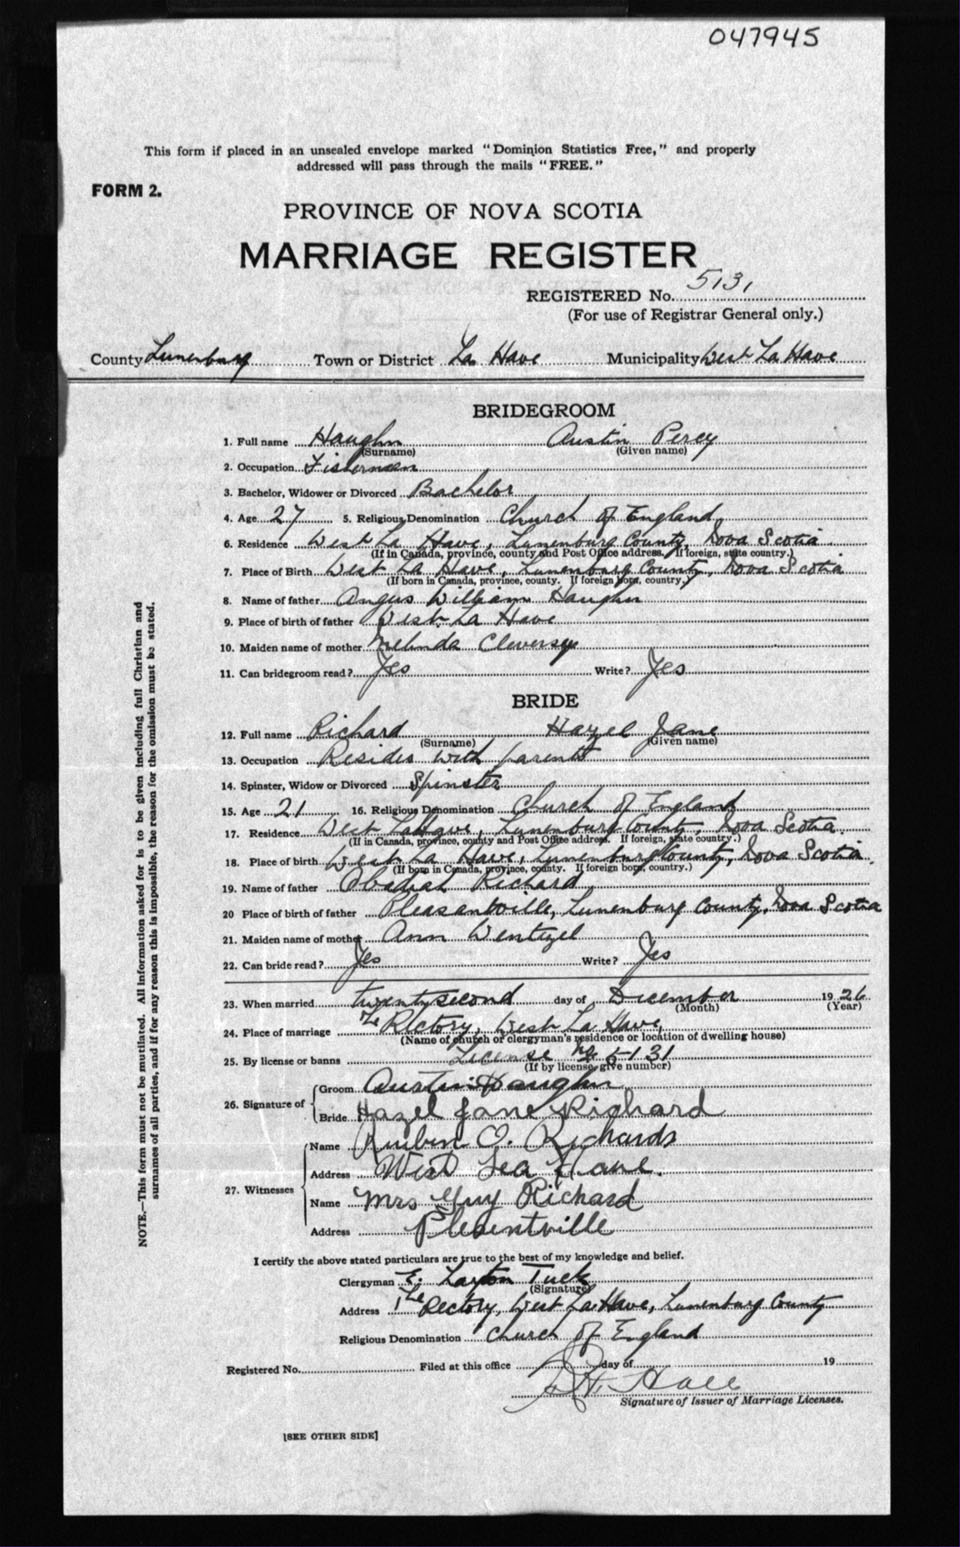 047945
This form if placed in an unsealed envelope marked "Dominion Statistics Free," and properly
addressed will pass through the mails "FREE."
FORM 2.
PROVINCE OF NOVA SCOTIA
MARRIAGE REGISTER
REGISTERED No. 5131
(For use of Registrar General only.)
County Lunenburg Town or District La Have Municipality West La Have
BRIDEGROOM
1. Full name Haughn Austin Percy
(Surname) (Given name)
2. Occupation Fisherman
3. Bachelor, Widower or Divorced Bachelor
4. Age 27 5. Religious Denomination Church of England
6. Residence West La Have, Lunenburg County, Nova Scotia
(If in Canada, province, county and Post Office address. If foreign, state country.)
7. Place of Birth West La Have, Lunenburg County, Nova Scotia
(If born in Canada, province, county. If foreign born, country.)
8. Name of father Angus William Haughn
9. Place of birth of father West La Have
10. Maiden name of mother Melinda Cleversey
11. Can bridegroom read? Yes Write? Yes
BRIDE
12. Full name Richard Hazel Jane
(Surname) (Given name)
13. Occupation Resides with parents
14. Spinster, Widow or Divorced Spinster
15. Age 21 16. Religious Denomination Church of England
17. Residence West La Have, Lunenburg County, Nova Scotia
(If in Canada, province, county and Post Office address. If foreign, state country.)
18. Place of birth West La Have, Lunenburg County, Nova Scotia
(If born in Canada, province, county. If foreign born, country.)
19. Name of father Obediah Richard
20 Place of birth of father Pleasantville, Lunenburg County, Nova Scotia
21. Maiden name of mother Ann Wentzel
22. Can bride read? Yes Write? Yes
23. When married twenty second day of December 1926
(Month) (Year)
24. Place of marriage The Rectory, West La Have,
(Name of church or clergyman's residence or location of dwelling house)
25. By license or banns License No 5131
(If by license give number)
26. Signature of Groom Austin Haughn
Bride Hazel Jane Richard
27. Witnesses Name Ruiben O. Richards
Address West Lea Have.
Name Mrs Guy Richard
Address Plesentville
I certify the above stated particulars are true to the best of my knowledge and belief.
Clergyman E. Layton Tuck
(Signature)
Address The Rectory, West La Have, Lunenburg County
Religious Denomination Church of England
Registered No. Filed at this office day of 19
Signature of Issuer of Marriage Licenses.
[SEE OTHER SIDE]
NOTE.—This form must not be mutilated. All information asked for is to be given including full Christian and
surnames of all parties, and if for any reason this is impossible, the reason for the omission must be stated.